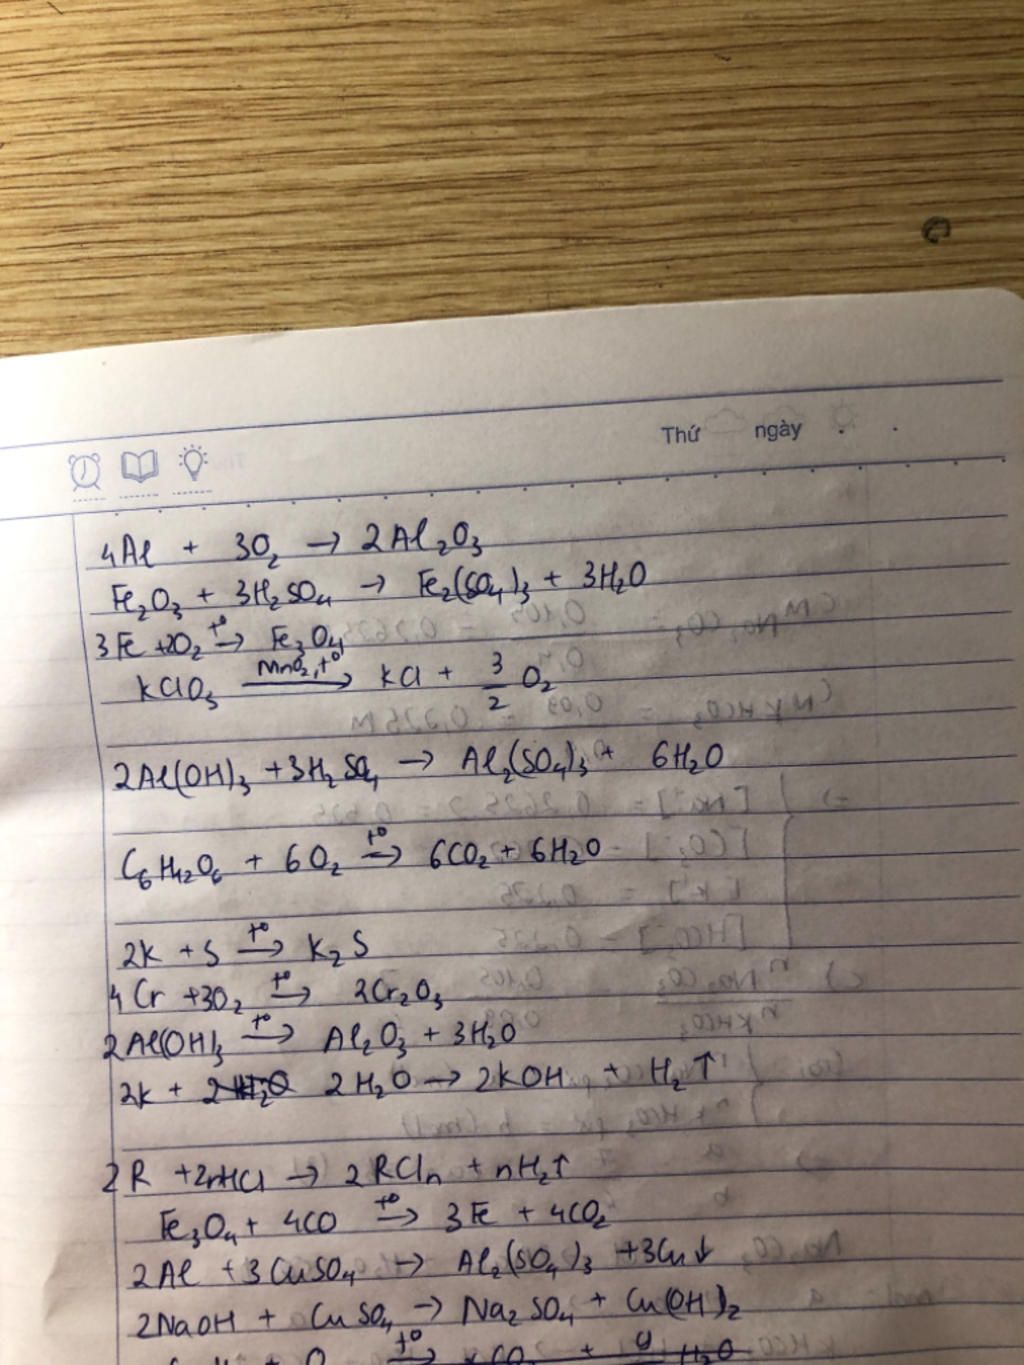 Thứ ngày
4Al + 3O₂ → 2Al₂O₃
Fe₂O₃ + 3H₂SO₄ → Fe₂(SO₄)₃ + 3H₂O
3Fe + 2O₂ t°→ Fe₃O₄
KClO₃ MnO₂, t°→ KCl + 3/2 O₂
2Al(OH)₃ + 3H₂SO₄ → Al₂(SO₄)₃ + 6H₂O
C₆H₁₂O₆ + 6O₂ t°→ 6CO₂ + 6H₂O
2K + S t°→ K₂S
4Cr + 3O₂ t°→ 2Cr₂O₃
2Al(OH)₃ t°→ Al₂O₃ + 3H₂O
2K + 2H₂O → 2KOH + H₂↑
2R + 2nHCl → 2RClₙ + nH₂↑
Fe₃O₄ + 4CO t°→ 3Fe + 4CO₂
2Al + 3CuSO₄ → Al₂(SO₄)₃ + 3Cu↓
2NaOH + CuSO₄ → Na₂SO₄ + Cu(OH)₂